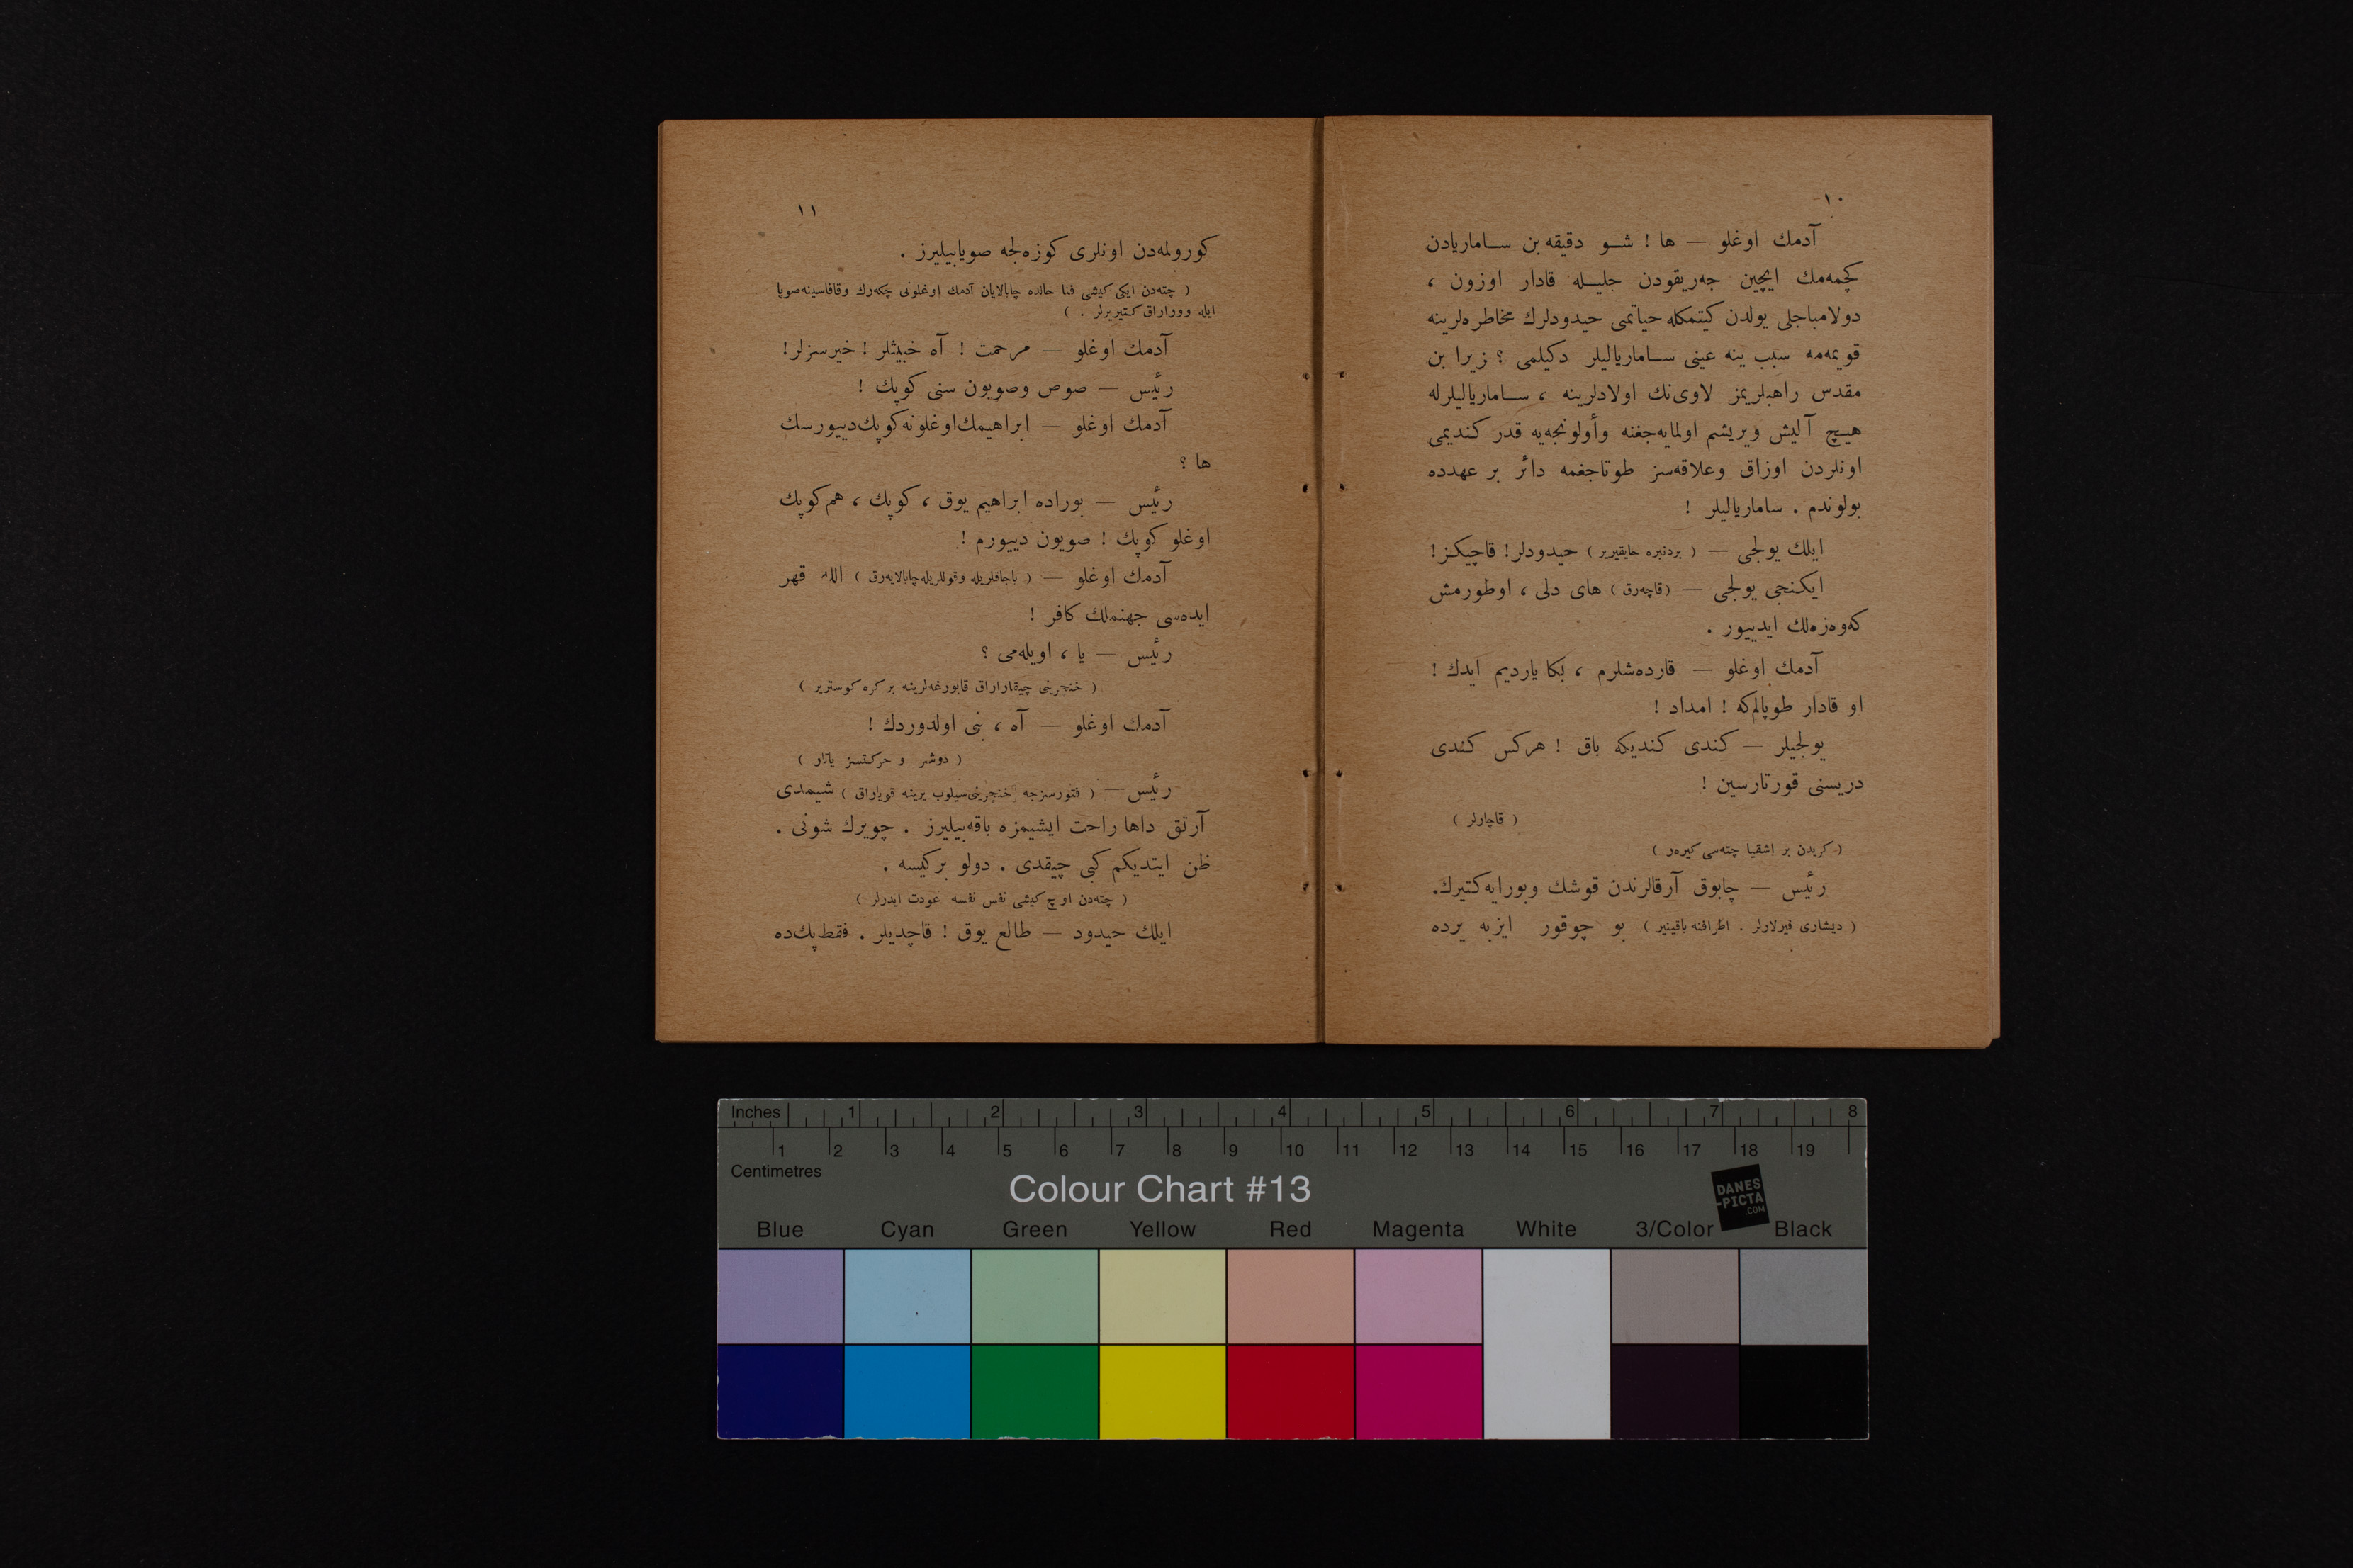 ١٠
آدمك اوغلو — ها ! شـو دقيقه بن سـاماريادن
كچمه‌مك ايچين جه‌ريقودن جليـله قادار اوزون ،
دولامباجلى يولدن كيتمكله حياتمى حيدودلرك مخاطره‌لرينه
قويمه‌مه سبب ينه عينى سـامارياليلر دكيلمى ؟ زيرا بن
مقدس راهبلريمز لاوى‌نك اولادلرينه ، سـامارياليلرله
هيـچ آليش ويريشم اولمايه‌جغنه وأولونجه‌يه قدر كنديمى
اونلردن اوزاق وعلاقه‌سز طوتاجغمه دائر بر عهدده
بولوندم . سامارياليلر !
ايلك يولجى — ( بردنبره حايقيرير ) حيدودلر ! قاچيكز !
ايكنجى يولجى — (قاچه‌رق) هاى دلى ، اوطورمش
كه‌وه‌زه‌لك ايدييور .
آدمك اوغلو — قارده‌شلرم ، بكا يارديم ايدك !
او قادار طوپالم‌كه ! امداد !
يولجيلر — كندى كنديكه باق ! هركس كندى
دريسنى قورتارسين !
( قاچارلر )
( كريدن بر اشقيا چته‌سى كيره‌ر )
رئيس — چابوق آرقالرندن قوشك وبورايه كتيرك.
( ديشارى فيرلارلر . اطرافنه باقينير ) بو چوقور ايزبه يرده
١١
كورولمه‌دن اونلرى كوزه‌لجه صويابيليرز .
( چته‌دن ايكى كيشى فنا حالده چابالايان آدمك اوغلونى چكه‌رك وقافاسينه صوپا
ايله ووراراق كتيريرلر . )
آدمك اوغلو — مرحمت ! آه خبيثلر ! خيرسزلر !
رئيس — صوص وصويون سنى كوپك !
آدمك اوغلو — ابراهيمك اوغلونه كوپك دييورسك
ها ؟
رئيس — بوراده ابراهيم يوق ، كوپك ، هم كوپك
اوغلو كوپك ! صويون دييورم !
آدمك اوغلو — ( باجاقلريله وقوللريله چابالايه‌رق ) الله قهر
ايده‌سى جهنملك كافر !
رئيس — يا ، اويله‌مى ؟
( خنجرينى چيقاراراق قابورغه‌لرينه بر كره كوسترير )
آدمك اوغلو — آه ، بنى اولدوردك !
( دوشر و حركتسز ياتار )
رئيس — ( فتورسزجه خنجرينى سيلوب يرينه قوياراق ) شيمدى
آرتق داها راحت ايشيمزه باقه‌بيليرز . چويرك شونى .
ظن ايتديكم كبى چيقدى . دولو بر كيسه .
( چته‌دن اوچ كيشى نفس نفسه عودت ايدرلر )
ايلك حيدود — طالع يوق ! قاچديلر . فقط پك‌ده
Inches 1 2 3 4 5 6 7 8
1 2 3 4 5 6 7 8 9 10 11 12 13 14 15 16 17 18 19
Centimetres
Colour Chart #13
DANES
-PICTA
.COM
Blue Cyan Green Yellow Red Magenta White 3/Color Black